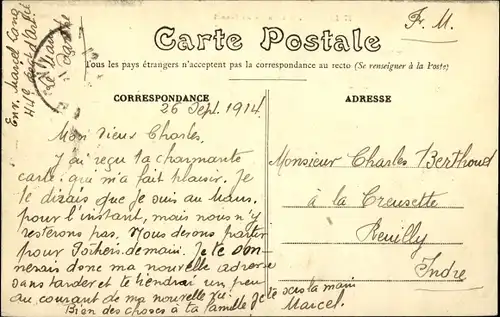 F. M.
Carte Postale
Tous les pays étrangers n'acceptent pas la correspondance au recto (Se renseigner à la Poste)
CORRESPONDANCE
ADRESSE
26 Sept. 1914.
Mon vieux Charles,
J'ai reçu ta charmante
carte qui m'a fait plaisir. Je
te dirais que je suis au Mans
pour l'instant, mais nous n'y
resterons pas. Nous devons partir
pour Poitiers demain. Je te don-
nerais donc ma nouvelle adresse
sans tarder et te tiendrai un peu
au courant de ma nouvelle vie.
Bien des choses à ta famille Je te sers la main
Marcel.
Monsieur Charles Berthoud
à la Creusette
Reuilly
Indre
Env. Marcel